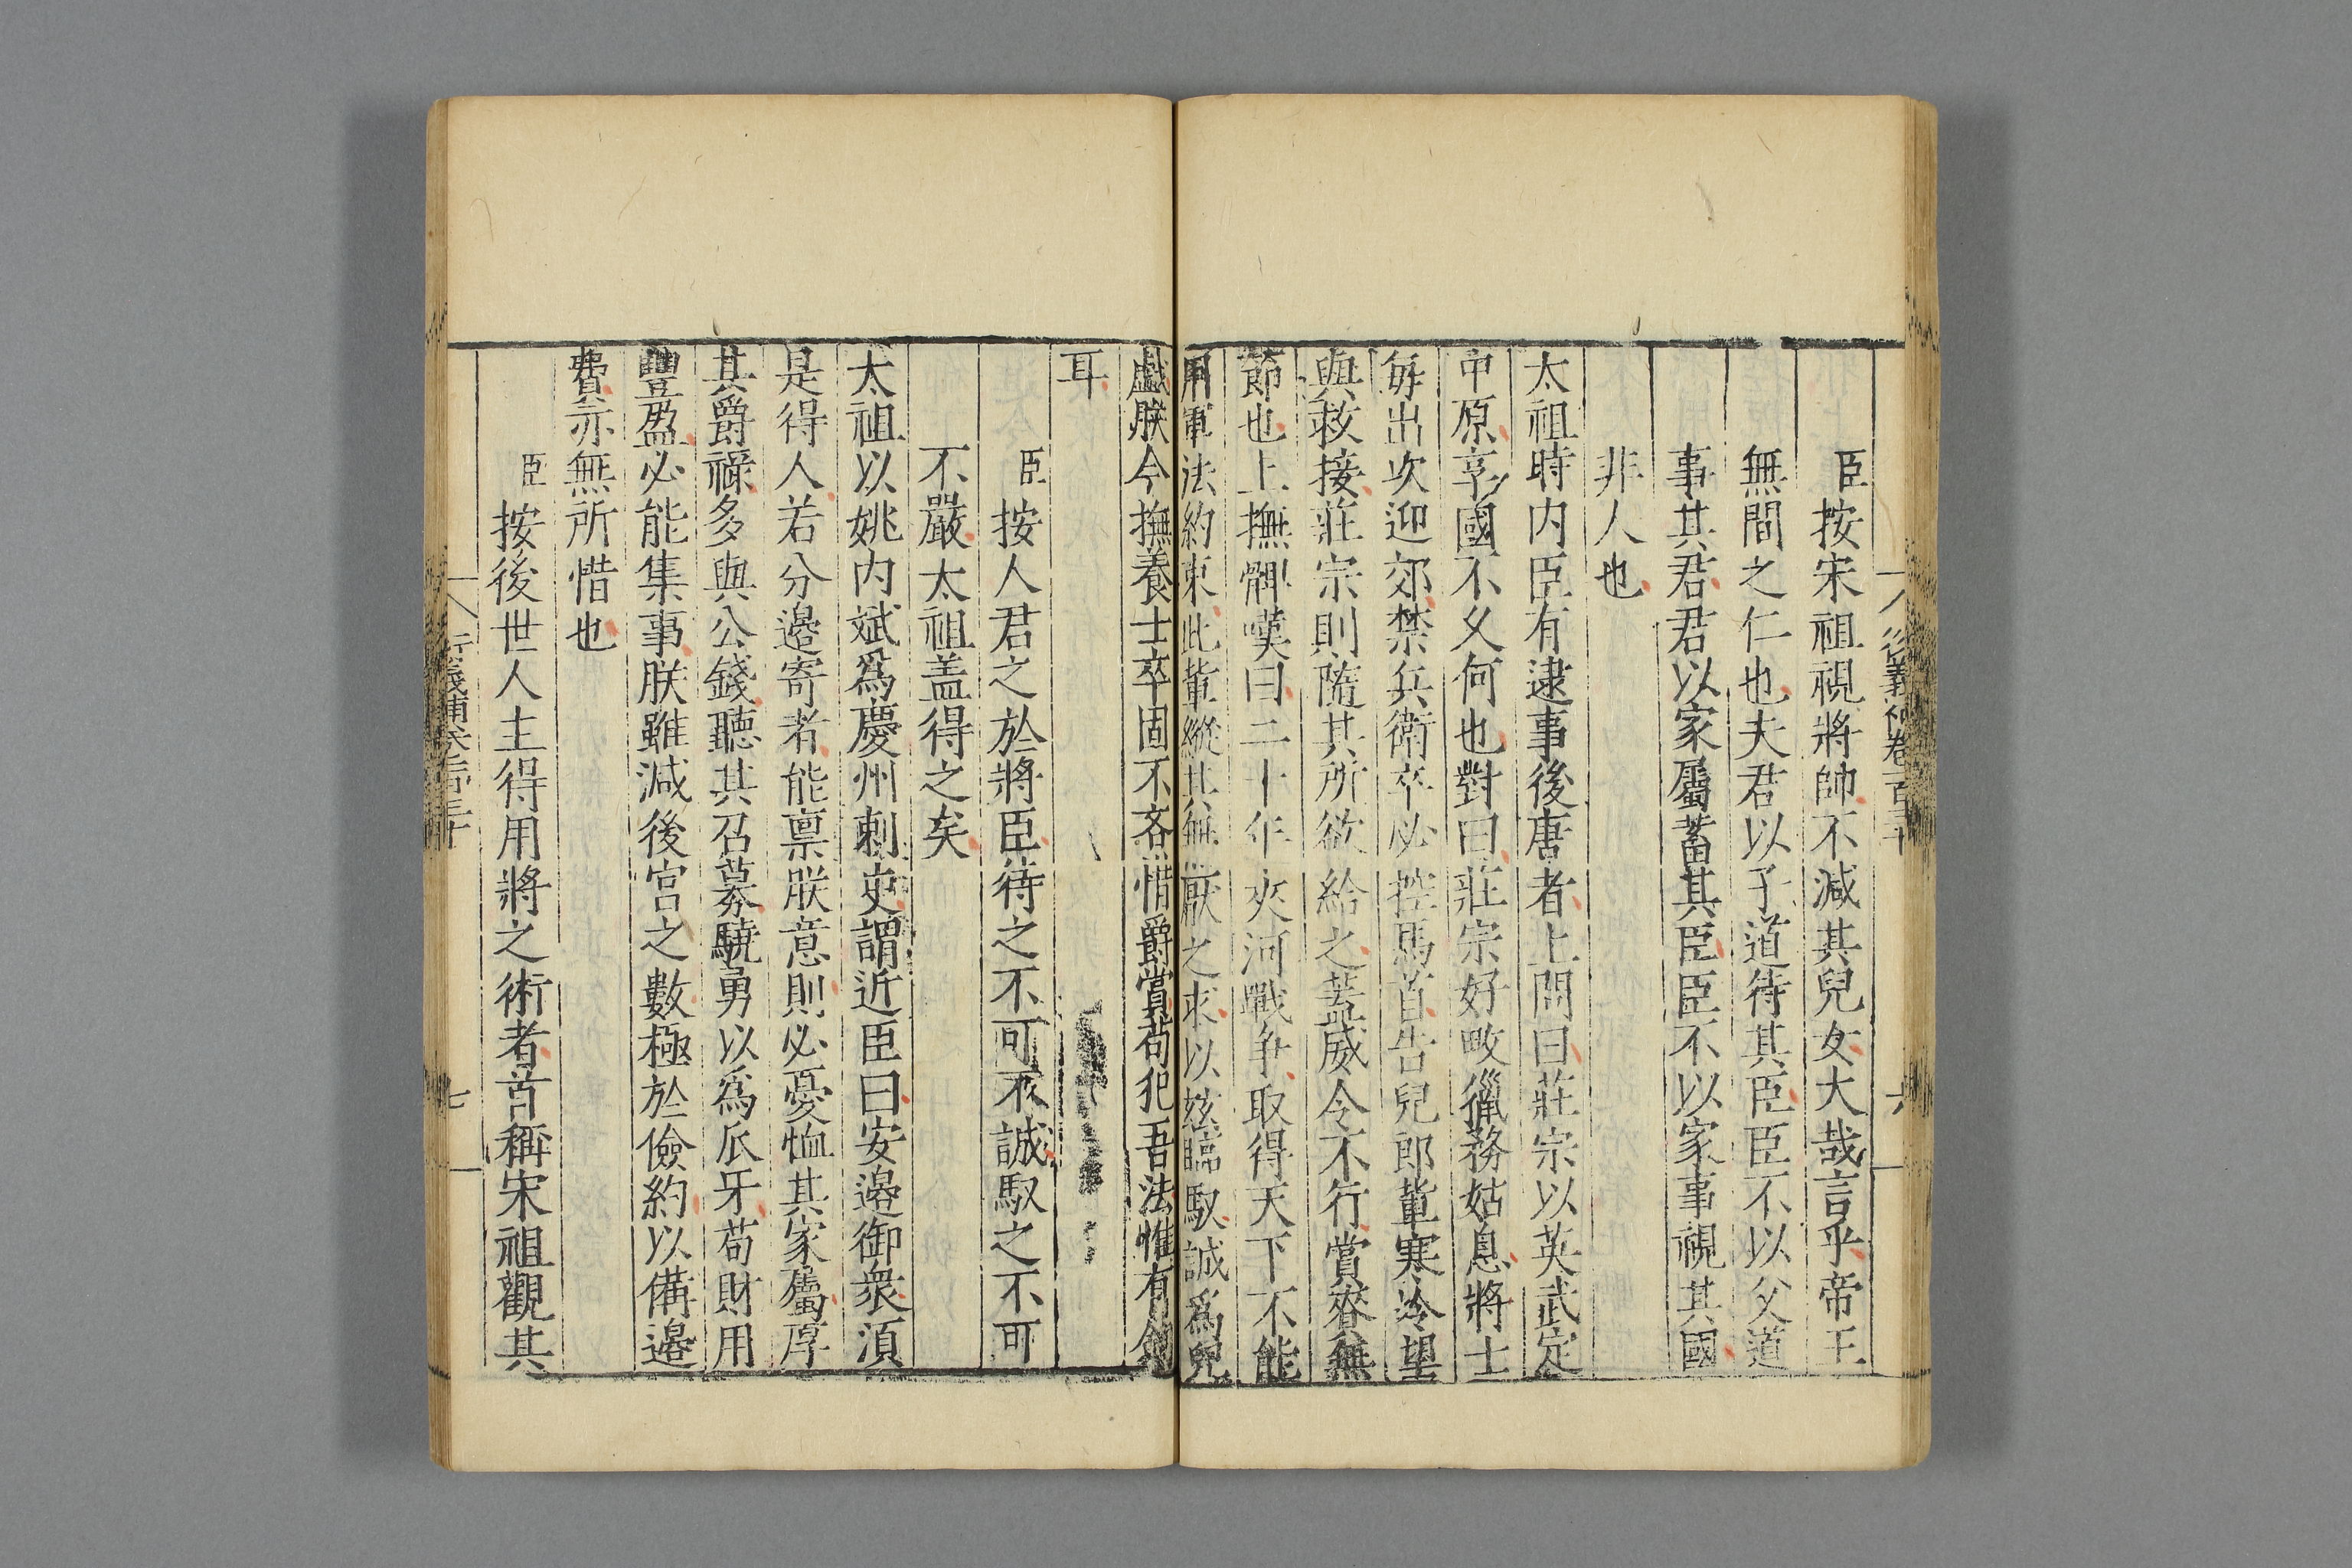 臣按宋祖視將帥不減其兒女大哉言乎帝王
無間之仁也夫君以子道待其臣臣不以父道
事其君君以家屬蓄其臣臣不以家事視其國
非人也
太祖時内臣有逮事後唐者上問曰莊宗以英武定
中原享國不久何也對曰莊宗好畋獵務姑息將士
每出次迎郊禁兵衛卒必控馬首告兒郎軰寒冷望
與救接莊宗則隨其所欲給之蓋威令不行賞賚無
節也上撫髀嘆曰二十年夾河戰争取得天下不能
用軍法約束此軰縱其無厭之求以兹臨馭誠爲兒
戲朕今撫養士卒固不吝惜爵賞苟犯吾法惟有劍
耳
臣按人君之於將臣待之不可不誠馭之不可
不嚴太祖盖得之矣
太祖以姚内斌爲慶州刺史謂近臣曰安邉御衆須
是得人若分邉寄者能禀朕意則必憂恤其家屬厚
其爵祿多與公錢聽其召募驍勇以爲爪牙苟財用
豐盈必能集事朕雖減後宮之數極於儉約以備邉
費亦無所惜也
臣按後世人主得用將之術者首稱宋祖觀其
七